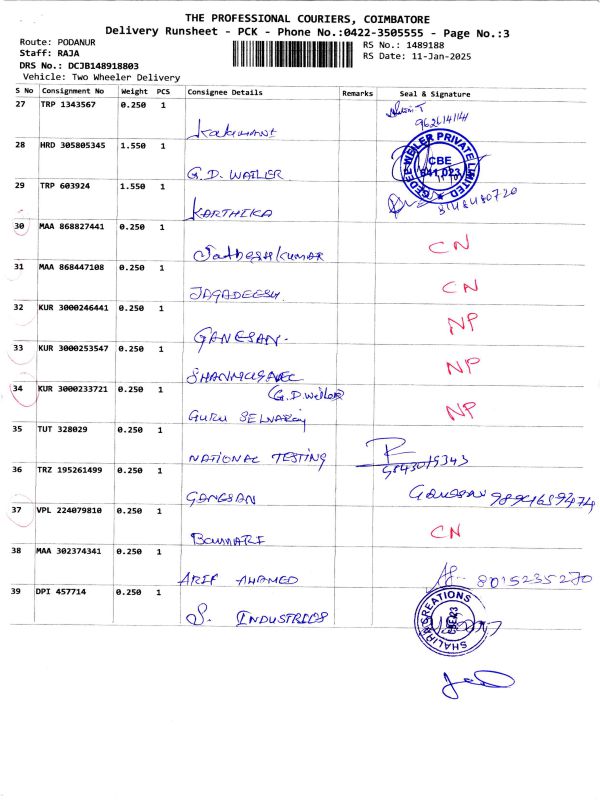 THE PROFESSIONAL COURIERS, COIMBATORE
Delivery Runsheet - PCK - Phone No.:0422-3505555 - Page No.:3
Route: PODANUR
RS No.: 1489188
Staff: RAJA
RS Date: 11-Jan-2025
DRS No.: DCJB148918803
Vehicle: Two Wheeler Delivery
S No Consignment No Weight PCS Consignee Details Remarks Seal & Signature
27 TRP 1343567 0.250 1
28 HRD 305805345 1.550 1
G.D. WAILER
GEDEE WEILER PRIVATE LIMITED
CBE
641 023
29 TRP 603924 1.550 1
KARTHIKA
30 MAA 868827441 0.250 1
Sathesh Kumar CN
31 MAA 868447108 0.250 1
JAGADEESH. CN
32 KUR 3000246441 0.250 1
GANESAN. NP
33 KUR 3000253547 0.250 1
NP
34 KUR 3000233721 0.250 1
(G.D.Weiler)
GURU SELVARAJ NP
35 TUT 328029 0.250 1
NATIONAL TESTING 9843019343
36 TRZ 195261499 0.250 1
GANGSAN
37 VPL 224079810 0.250 1
BOUMARI CN
38 MAA 302374341 0.250 1
ARIF AHAMED 8015235270
39 DPI 457714 0.250 1
S. INDUSTRIES
CREATIONS
CBE-23